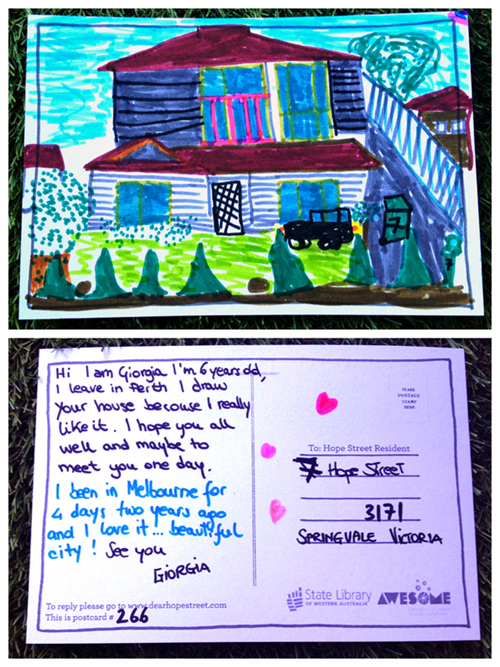 7
Hi I am Giorgia I'm 6 years old,
I leave in Perth I draw
your house becouse I really
like it. I hope you all
well and maybe to
meet you one day.
I been in Melbourne for
4 days two years ago
and I love it... beautiful
city! See you
GIORGIA
To reply please go to www.dearhopestreet.com
This is postcard # 266
PLACE
POSTAGE
STAMP
HERE
To: Hope Street Resident
7 Hope Street
3171
SPRINGVALE VICTORIA
State Library
OF WESTERN AUSTRALIA
AWESOME